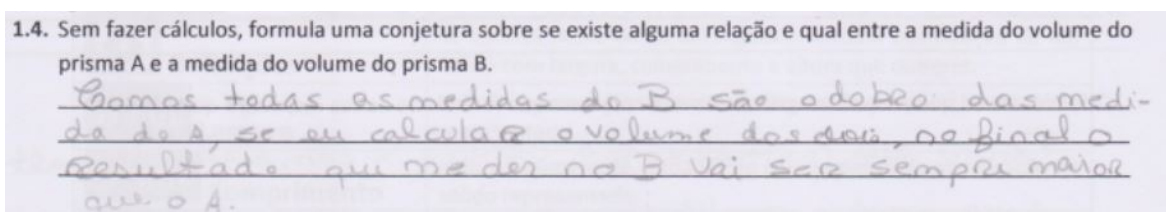 1.4. Sem fazer cálculos, formula uma conjetura sobre se existe alguma relação e qual entre a medida do volume do
prisma A e a medida do volume do prisma B.
Comos todas as medidas do B são o dobro das medi-
da do A, se eu calcular o volume dos dois, no final o
resultado qui me der no B vai ser sempre maior
que o A.